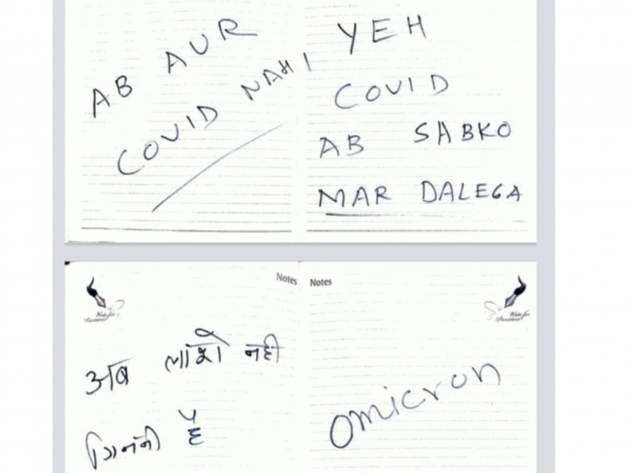 AB AUR
COVID NAHI
YEH
COVID
AB SABKO
MAR DALEGA
Notes
अब लाशे नही
गिननी है
Notes
omicron